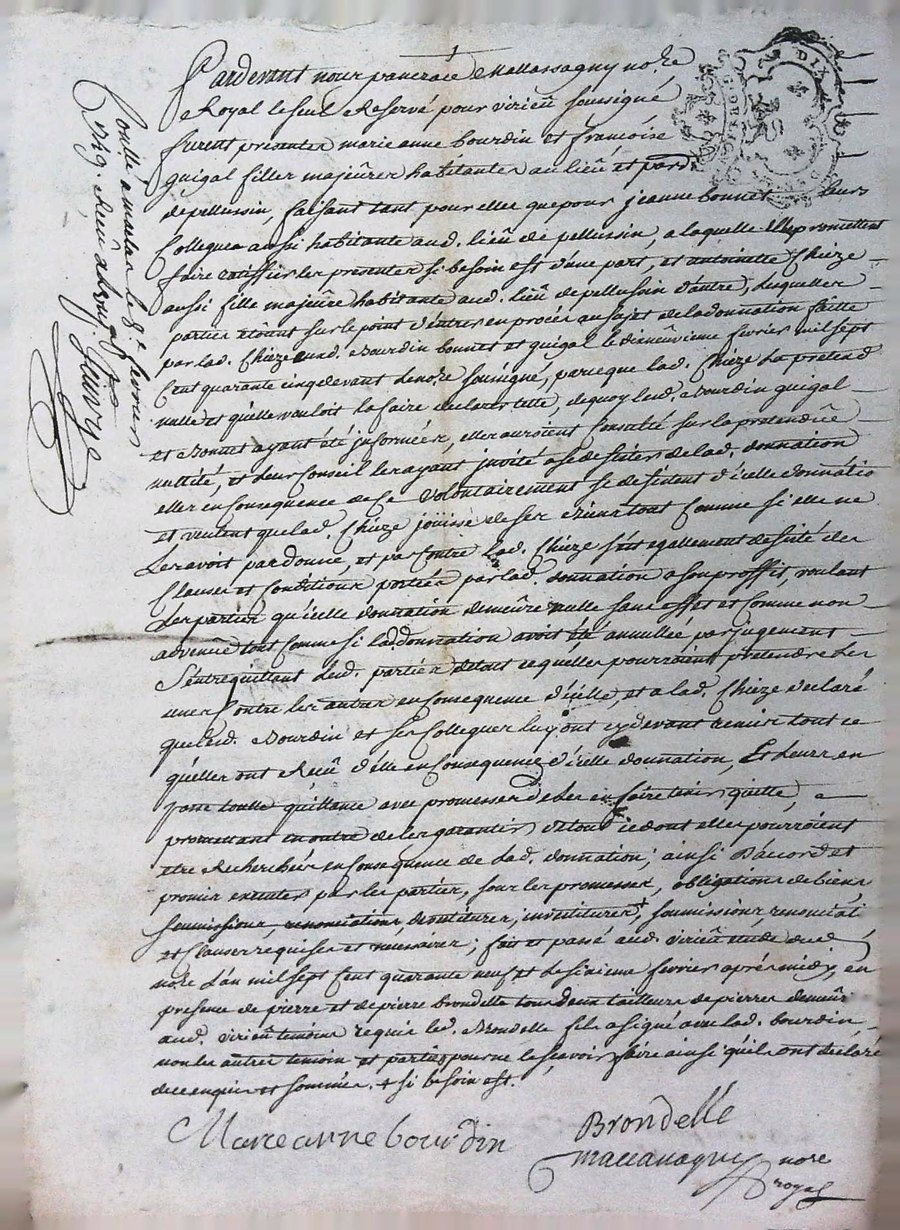 Pardevant nous pancrace Mallassagny no.re
Royal le seul Reservé pour virieû sousigné
furent presentes marie anne bourdin et françoise
guigal filles majeûres habitantes au lieû et par.
de pellussin, faisant tant pour elle que pour jeanne bonnet leurs
Collegue aussi habitante aud. lieû de pellussin, a laquelle elles promettent
faire ratiffier les presentes si besoin est d'une part, et antoinette Chieze
aussi fille majeûre habitante aud. lieû de pellussin d'autre, lesquelles
parties étant sur le point d'entrer en procés au sujet de la donnation faitte
par lad. Chieze aux d. Bourdin bonnet et guigal le dixneûvieme fevrier mil sept
Cent quarante cinq devant Le no.re sousigné, parce que lad. Chieze La pretend
nulle et qu'elle vouloit la faire declarer telle, de quoy les d. Bourdin guigal
et Bonnet ayant été informées, elles auroient Consulté sur la pretendüe
nullité, et leur Conseil les ayant invité a se desister de lad. donnation
elles en Consequence de Ce volontairement se desistent d'icelle donnatio
et veulent que lad. Chieze joüisse de ses Biens tout Comme si elle ne
Les avoit pas donné, et par Contre Lad. Chieze s'est egallement desisté des
Clauses et Conditions portées par lad. donnation a son proffit, voulant
Les parties qu'icelle donnation demeûre nulle sans effet et Comme non
advenüe tout Comme si lad. donnation avoit été annullée par jugement
S'entrequittant Lesd. parties de tout ce qu'elles pourroient pretendre Les
unes Contre les autres en Consequence d'icelle, et a lad. Chieze declaré
que lesd. Bourdin et ses Collegues luy ont cy devant remis tout ce
qu'elles ont Reçû d'elle en Consequence d'icelle donnation, Et leurs en
passe toutte quittance avec promesse de les en faire tenir quitte,
promettant en outre de les garantir de tout ce dont elles pourroient
etre Recherchées en Consequence de Lad. donnation; ainsi D'accord et
promis executer par les parties, sous les promesses, obligations de biens
soumissions, renonciations, devettitures, investitures +, soumissions, renonciati
et Clauses requises et necessaires; fait et passé aud. virieû etude dud.
no.re L'an mil sept Cent quarante neuf, et Le sixieme fevrier aprés midy, en
presence de pierre et de pierre Brondelle tous deux tailleurs de pierres demeûr
aud. virieû temoins requis led. Brondelle fils a signé avec lad. bourdin
non les autres temoin et parties pour ne le sçavoir faire ainsi qu'ils ont declaré
de ce enquis et sommés. + si besoin est.
Maree anne bourdin
Brondelle
no.re
royal
Conllé a le 8e fevrier
1749. Reçû